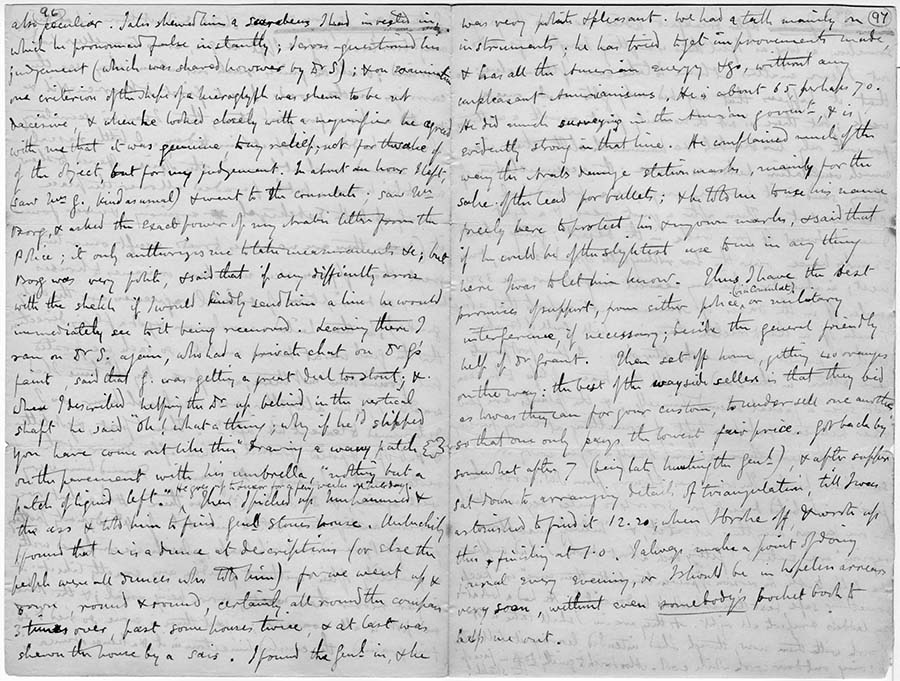 96
also peculiar. I also shewed him a scarabeus I had invested in,
which he pronounced false instantly; I cross-questioned his
judgement (which was shared however by Dr S); & on examination
one criterion of the shape of a hieroglyph was shewn to be not
decisive & when he looked closely with a magnifier he agreed
with me that it was genuine to my relief; not for the value of
of the object, but for my judgement. In about an hour I left,
saw Mrs G. kind as usual) & went to the consulate; saw Mr
Borg, & asked the exact power of my Arabic letter from the
Police; it only authorizes me to take measurements &c; but
Borg was very polite, & said that if any difficulty arose
with the sheikh if I would kindly send him a line he would
immediately see to it being removed. Leaving there I
ran on Dr S. again, who had a private chat on Dr G's
faint, said that G. was getting a great deal too stout; &
when I described helping the Dr up behind in the vertical
shaft he said "Oh! what a thing; why if he'd slipped
you have come out like this" drawing a wavy patch
on the pavement with his umbrella, "nothing but a
patch of liquid left".
Then I picked up Muhammed &
the ass & told him to find Genl Stone's house. Unluckily
I found that he is a dunce at descriptions (or else the
people were all dunces who told him) for we went up &
down, round & round, certainly all round the compass
3 times over, past some houses twice, & at last was
shewn the house by a sais. I found the Genl in, & he
97
was very polite & pleasant. We had a talk mainly on
instruments. he has tried to get improvements made,
& has all the American energy & go, without any
unpleasant Americanisms. He is about 65 perhaps 70.
He did much surveying in the American govermt, & is
evidently strong in that line. He complained much of the
way the Arabs damage station marks, mainly for the
sake of the lead for bullets; & he told me to use his name
freely here to protect his & my own marks, & said that
if he could be of the slightest use to me in any thing
here I was to let him know. Thus I have the best
promises of support, from either police, (via Consulat) or military
interference, if necessary; beside the general friendly
help of Dr Grant. Then set off home, getting 20 oranges
on the way: the best of the wayside sellers is that they bid
as low as they can for your custom, to undersell one another
so that one only pays the lowest fair price. Got back by
somewhat after 7 (being late hunting the Genl) & after supper
sat down to arranging details of triangulation, till I was
astonished to find it 12.20, when I broke off, & wrote up
this, finishing at 1.0. I always make a point of doing
journal every evening, or I should be in hopeless arrears
very soon, without even somebody's pocket book to
help me out.